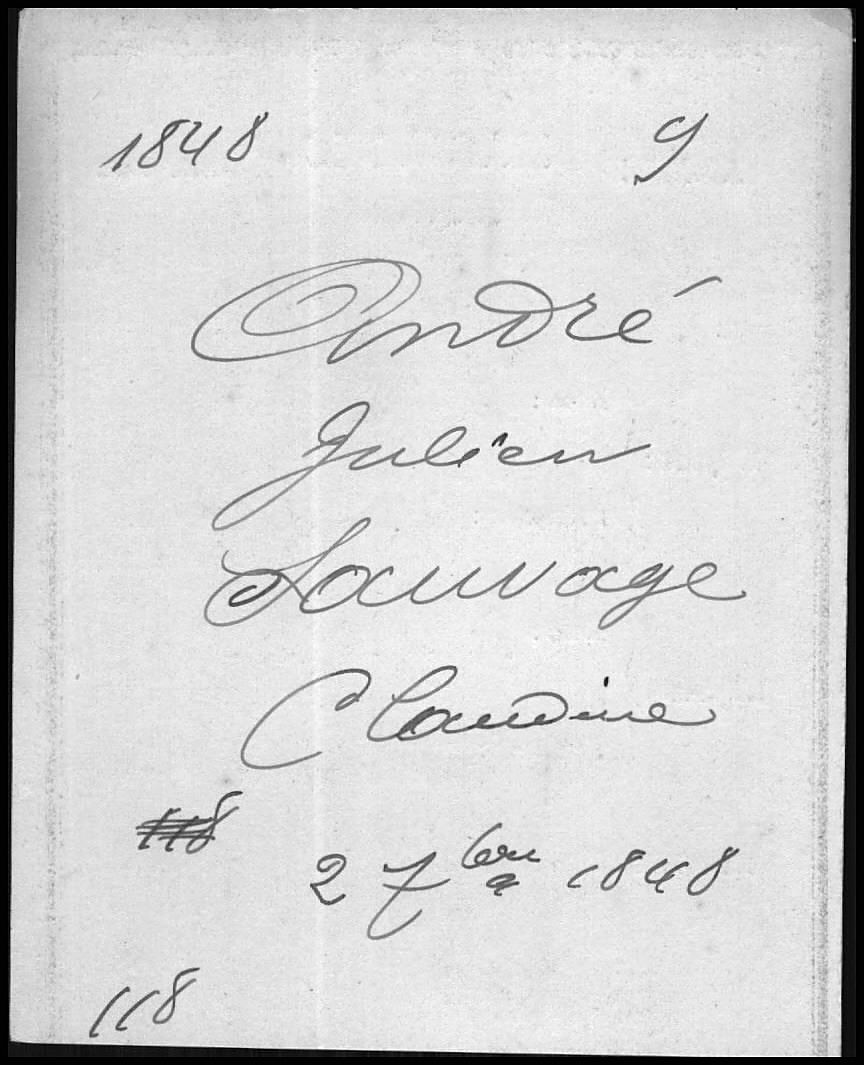 1848 9
André
Julien
Sauvage
Claudine
118
2 7bre 1848
118